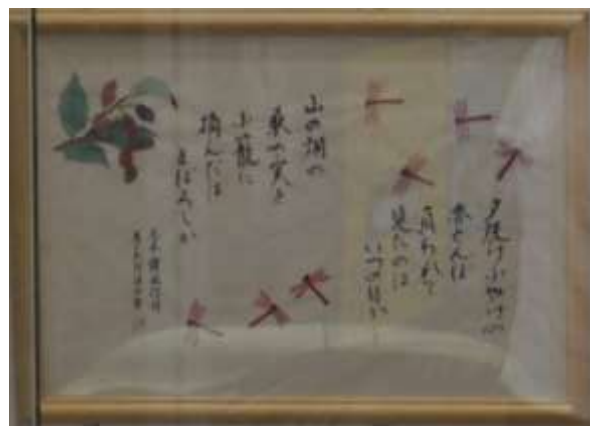 夕焼け小やけの
赤とんぼ
負われて
見たのは
いつの日か
山の畑の
桑の実を
小籠に
摘んだは
まぼろしか